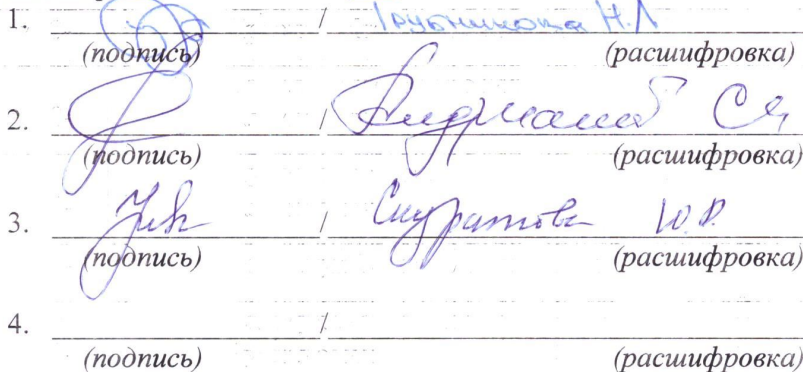 1. / Трубникова Н.Л
(подпись) (расшифровка)
2. / Андрианов С
(подпись) (расшифровка)
3. / Скуратова Ю.В.
(подпись) (расшифровка)
4. /
(подпись) (расшифровка)